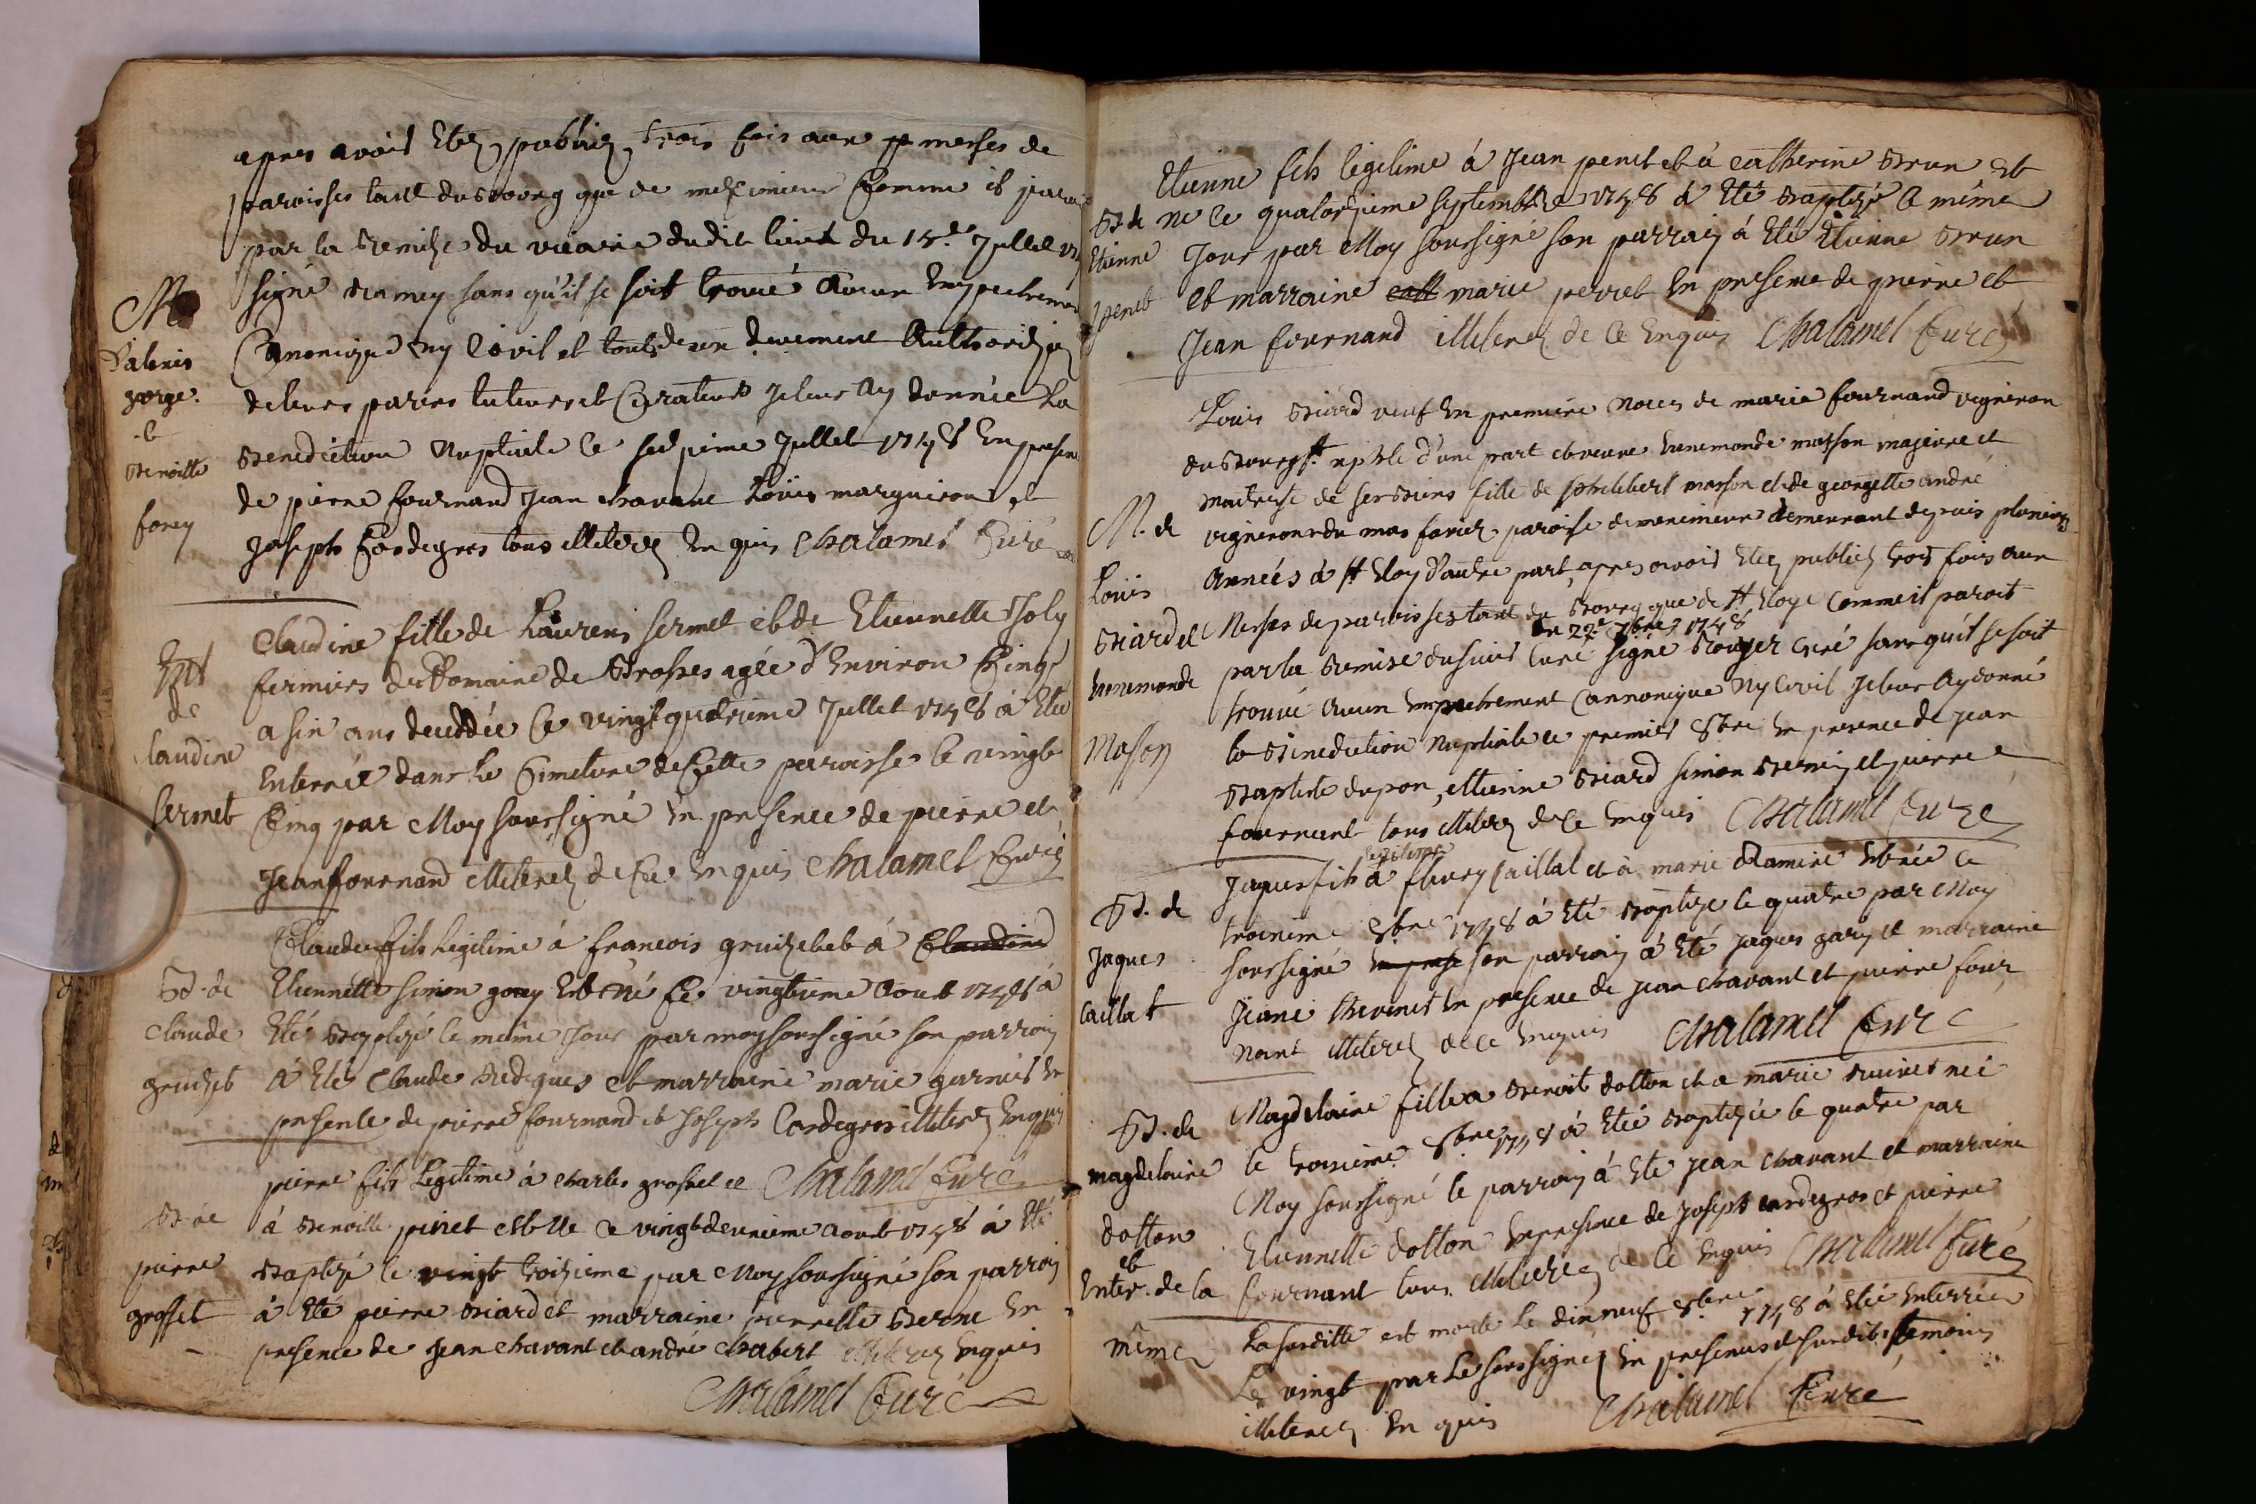 apres avoir Eté publiez trois fois aux messes de
paroisses tant du bourg que de meximieux Comme il paroit
par la Remise du vicaire dudit lieu du 15.e Jullet
signé sans qu'il se soit trouvé Aucun Empechement
Canonique ny Civil et tous deux deuement Authorizez
de leurs pares tuteurs et Curateurs Je leur Ay donnée La
Benediction Nuptiale le Jullet 1748 En presence
de pierre fournand Jean chavant Loüis marguiron et
Joseph Cordegros tous illiterez Enquis Chalamel Curé
M
george
et
Benoitte
forey
Claudine fille de Laurens sermet et de Etiennette Joly
fermiers du Domaine de Brosses agée d'Environ Cinq
a six ans deceddée Le vingt quatrieme Jullet 1748 à Eté
Enterrée dans Le Cimetiere de Cette paroisse le vingt
Cinq par Moy soussigné En presence de pierre et
Jean fournand illiterez de Ce Enquis Chalamel Curé
Ent
de
Claudine
sermet
Claude fils Legitime à francois gruizet et à Claudine
Etiennette simon Est Né Le vingtieme Aout 1748 à
Eté Baptizé le même Jour par moy soussigné son parrain
à Eté Claude et marraine marie garnier En
presence de pierre fournand et Joseph Cordegros illiterez Enquis
Chalamel Curé
Bt. de
Claude
gruizet
pierre fils Legitime à charles grosset et
à Benoitte pinet est Né Le vingt deuxieme Aout 1748 à Eté
Baptizé le vingt troizieme par Moy soussigné son parrain
à Eté pierre Biard et marraine pierrette Berne En
presence de Jean chavant et andré chabert illiterez Enquis
Chalamel Curé
Bt de
pierre
grosset
Etienne fils legitime à Jean penet et à catherine Brun Est
Né Le quatorzieme septembre 1748 à Eté Baptizé Le même
Jour par Moy soussigné son parrain à Eté Etienne Brun
et marraine cath marie perret En presence de pierre et
Jean fournand illiterez de Ce Enquis Chalamel Curé
Bt de
Etienne
penet
Louis Biard veuf En premiere Noces de marie fournand vigneron
du Bourg St d'une part et Ennemonde masson majeure et
maitresse de ses Biens fille de philibert masson et de georgette andré
vigneron du mas paroisse de demeurant depuis plusieurs
Années à St Eloy d'autre part, apres avoir Eté publiez trois fois aux
Messes de paroisses tant du Bourg que de St Eloye Comme il paroit
du 22e 7bre 1748
par la Remise du sieur Curé signé Royer Curé sans qu'il se soit
trouvé Aucun Empechement Cannonique Ny Civil Je leur Ay donné
la Benediction Nuptiale Le premier 8bre En presence de Jean
Baptiste dupon, Etienne Biard simon et pierre
fournant tous illiterez de Ce Enquis Chalamel Curé
M. de
Loüis
Biard et
Ennemonde
Masson
legitime
Jaques fils à fleury Caillat et à marie Est né Le
troizieme 8bre 1748 à Eté Baptizé le quatre par Moy
soussigné En prese son parrain à Eté Jaques gary et marraine
Jeane thevenet En presence de Jean chavant et pierre four
nant illiterez de Ce Enquis Chalamel Curé
Bt. de
Jaques
Caillat
Magdelaine fille a Benoit dotton et a marie née
le troizieme 8bre 1748 à Eté Baptizée le quatre par
Moy soussigné le parrain à Eté Jean chavant et marraine
Etiennette dotton En presence de Joseph Cordegros et pierre
fournant tous illiterez de Ce Enquis Chalamel Curé
Bt. de
magdelaine
dotton
et
Enter. de la
même
La suditte est morte Le dixneuf 8bre 1748 à Eté Enterrée
Le vingt par Le soussigné En presence des sudits temoins
illiterez Enquis Chalamel Curé